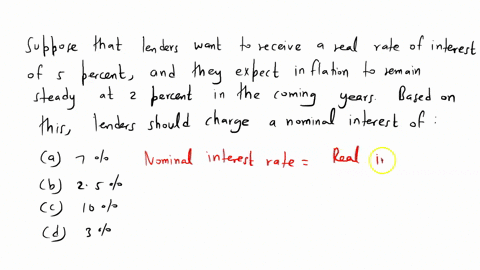 Suppose that lenders want to receive a real rate of interest
of 5 percent, and they expect inflation to remain
steady at 2 percent in the coming years. Based on
this, lenders should charge a nominal interest of :
(a) 7 % Nominal interest rate = Real in
(b) 2.5 %
(c) 10 %
(d) 3 %